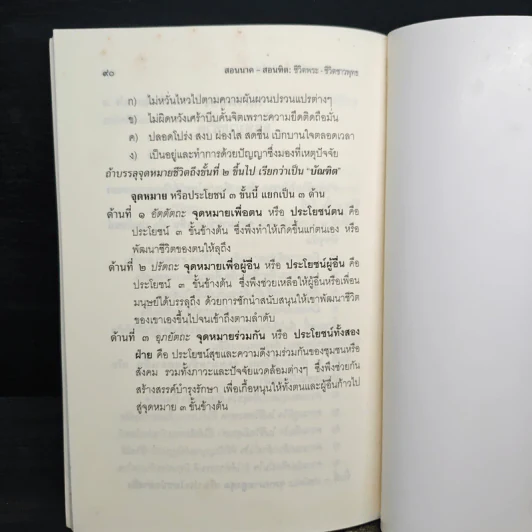 ๙๐ สอนนาค – สอนทิด: ชีวิตพระ - ชีวิตชาวพุทธ
ก) ไม่หวั่นไหวไปตามความผันผวนปรวนแปรต่างๆ
ข) ไม่ผิดหวังเศร้าบีบคั้นจิตเพราะความยึดติดถือมั่น
ค) ปลอดโปร่ง สงบ ผ่องใส สดชื่น เบิกบานใจตลอดเวลา
ง) เป็นอยู่และทำการด้วยปัญญาซึ่งมองที่เหตุปัจจัย
ถ้าบรรลุจุดหมายชีวิตถึงขั้นที่ ๒ ขึ้นไป เรียกว่าเป็น “บัณฑิต”
จุดหมาย หรือประโยชน์ ๓ ขั้นนี้ แยกเป็น ๓ ด้าน
ด้านที่ ๑ อัตตัตถะ จุดหมายเพื่อตน หรือ ประโยชน์ตน คือ
ประโยชน์ ๓ ขั้นข้างต้น ซึ่งพึงทำให้เกิดขึ้นแก่ตนเอง หรือ
พัฒนาชีวิตของตนให้ลุถึง
ด้านที่ ๒ ปรัตถะ จุดหมายเพื่อผู้อื่น หรือ ประโยชน์ผู้อื่น คือ
ประโยชน์ ๓ ขั้นข้างต้น ซึ่งพึงช่วยเหลือให้ผู้อื่นหรือเพื่อน
มนุษย์ได้บรรลุถึง ด้วยการชักนำสนับสนุนให้เขาพัฒนาชีวิต
ของเขาเองขึ้นไปจนเข้าถึงตามลำดับ
ด้านที่ ๓ อุภยัตถะ จุดหมายร่วมกัน หรือ ประโยชน์ทั้งสอง
ฝ่าย คือ ประโยชน์สุขและความดีงามร่วมกันของชุมชนหรือ
สังคม รวมทั้งภาวะและปัจจัยแวดล้อมต่างๆ ซึ่งพึงช่วยกัน
สร้างสรรค์บำรุงรักษา เพื่อเกื้อหนุนให้ทั้งตนและผู้อื่นก้าวไป
สู่จุดหมาย ๓ ขั้นข้างต้น